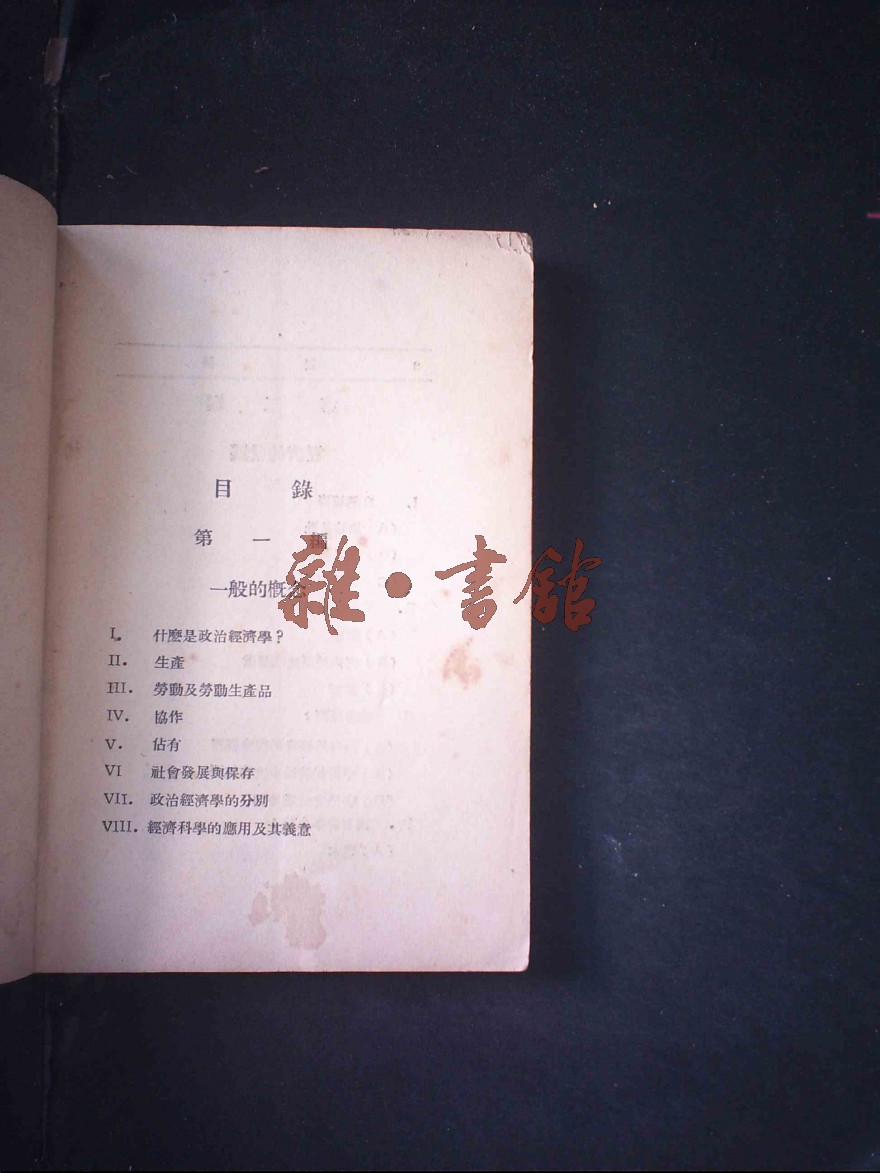 目 錄
第 一 編
一般的概念
I. 什麼是政治經濟學？
II. 生產
III. 勞動及勞動生產品
IV. 協作
V. 佔有
VI 社會發展與保存
VII. 政治經濟學的分別
VIII. 經濟科學的應用及其義意
雜·書館